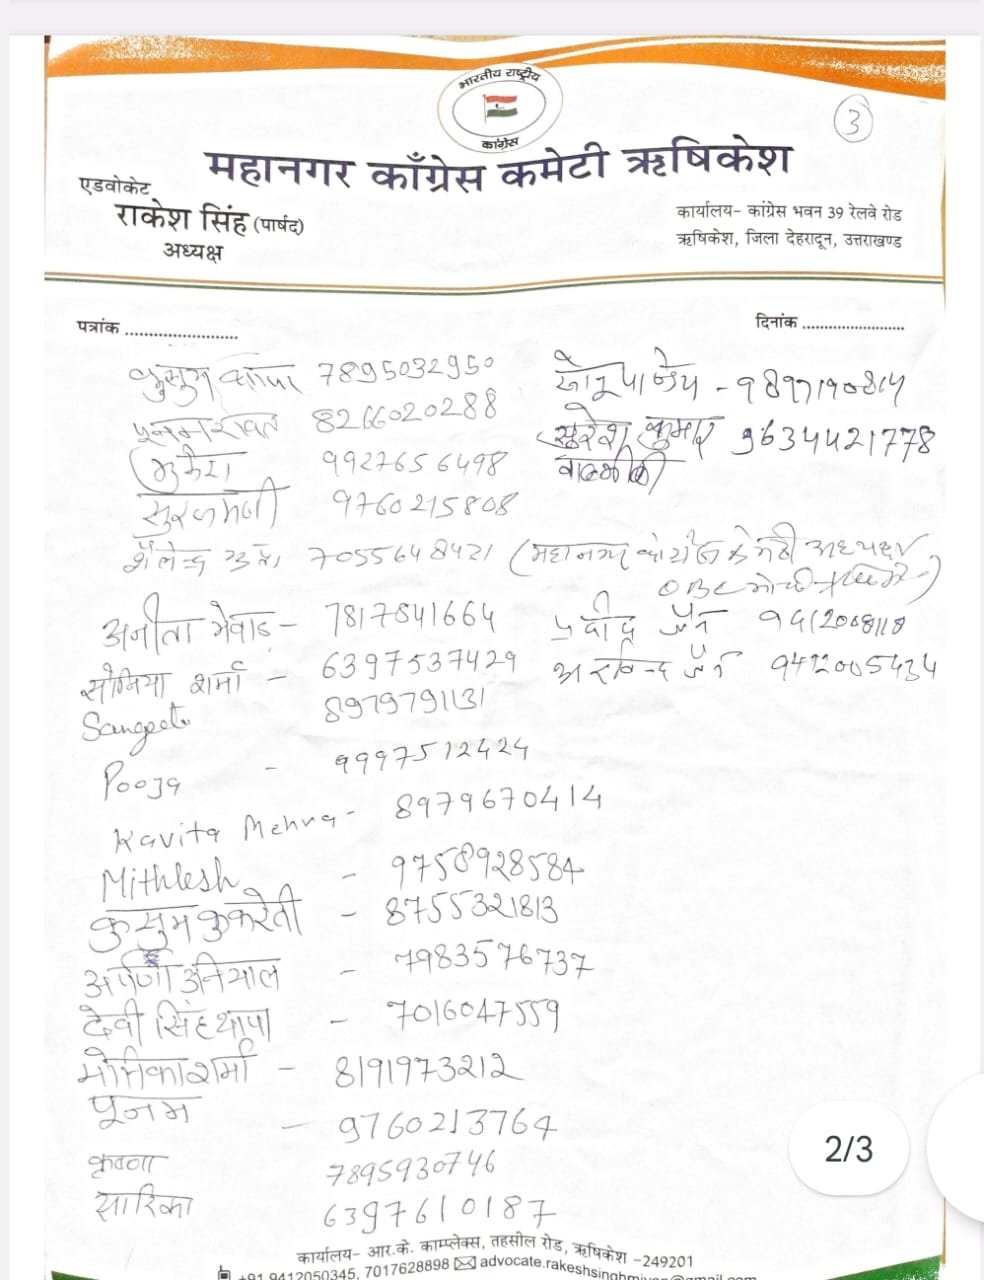 भारतीय राष्ट्रीय
कांग्रेस
3
महानगर काँग्रेस कमेटी ऋषिकेश
एडवोकेट
राकेश सिंह (पार्षद)
अध्यक्ष
कार्यालय- कांग्रेस भवन 39 रेलवे रोड
ऋषिकेश, जिला देहरादून, उत्तराखण्ड
पत्रांक ..........................
दिनांक ........................
कुसुम 7895032950
पूनम रावत 8266020288
9927656498
सुरजमणी 9760215808
शैलेन्द्र 7055648421 (महानगर कमेटी अध्यक्ष
OBC
अनीता - 7817841664
सोनिया शर्मा - 6397537429
Sangeeta 8979791131
Pooja - 9997512424
Kavita Mehra - 8979670414
Mithlesh - 9758928584
कुसुम कुकरेती - 8755321813
अर्पणा उनियाल - 7983576737
देवी सिंह थापा - 7016047559
मोनिका शर्मा - 8191973212
पूनम - 9760213764
कृष्णा 7895930746
सारिका 6397610187
- 9897190814
सुरेश कुमार 9634421778
वाल्मीकी
जैन 9412008118
अरविन्द जैन 9412005434
2/3
कार्यालय- आर.के. काम्प्लेक्स, तहसील रोड, ऋषिकेश -249201
+91 9412050345, 7017628898